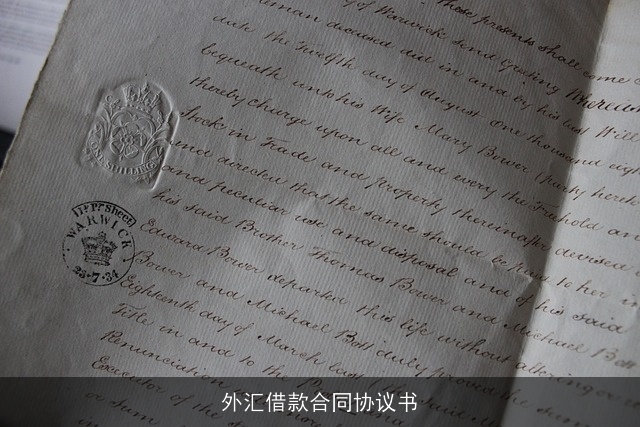 these presents shall come
of Warwick send Greeting Whereas
deceased did in and by his last Will
date the Twelfth day of August One thousand eigh
bequeath unto his Wife Mary Bower
thereby charge upon all and every the Freehold and
Stock in Trade and property thereinafter devised
and directed that the same should be paid to her
and peculiar use and disposal and of his said
his said Brother Thomas Bower and Michael Bott
Edward Bower departed this life without altering or
Bower and Michael Bott duly proved the same
Eighteenth day of March last
Title in and to the
Renunciation
Executor of the
or Sum
ONE SHILLING
11r Pr Sheet
WARWICK
23·7·34
外汇借款合同协议书